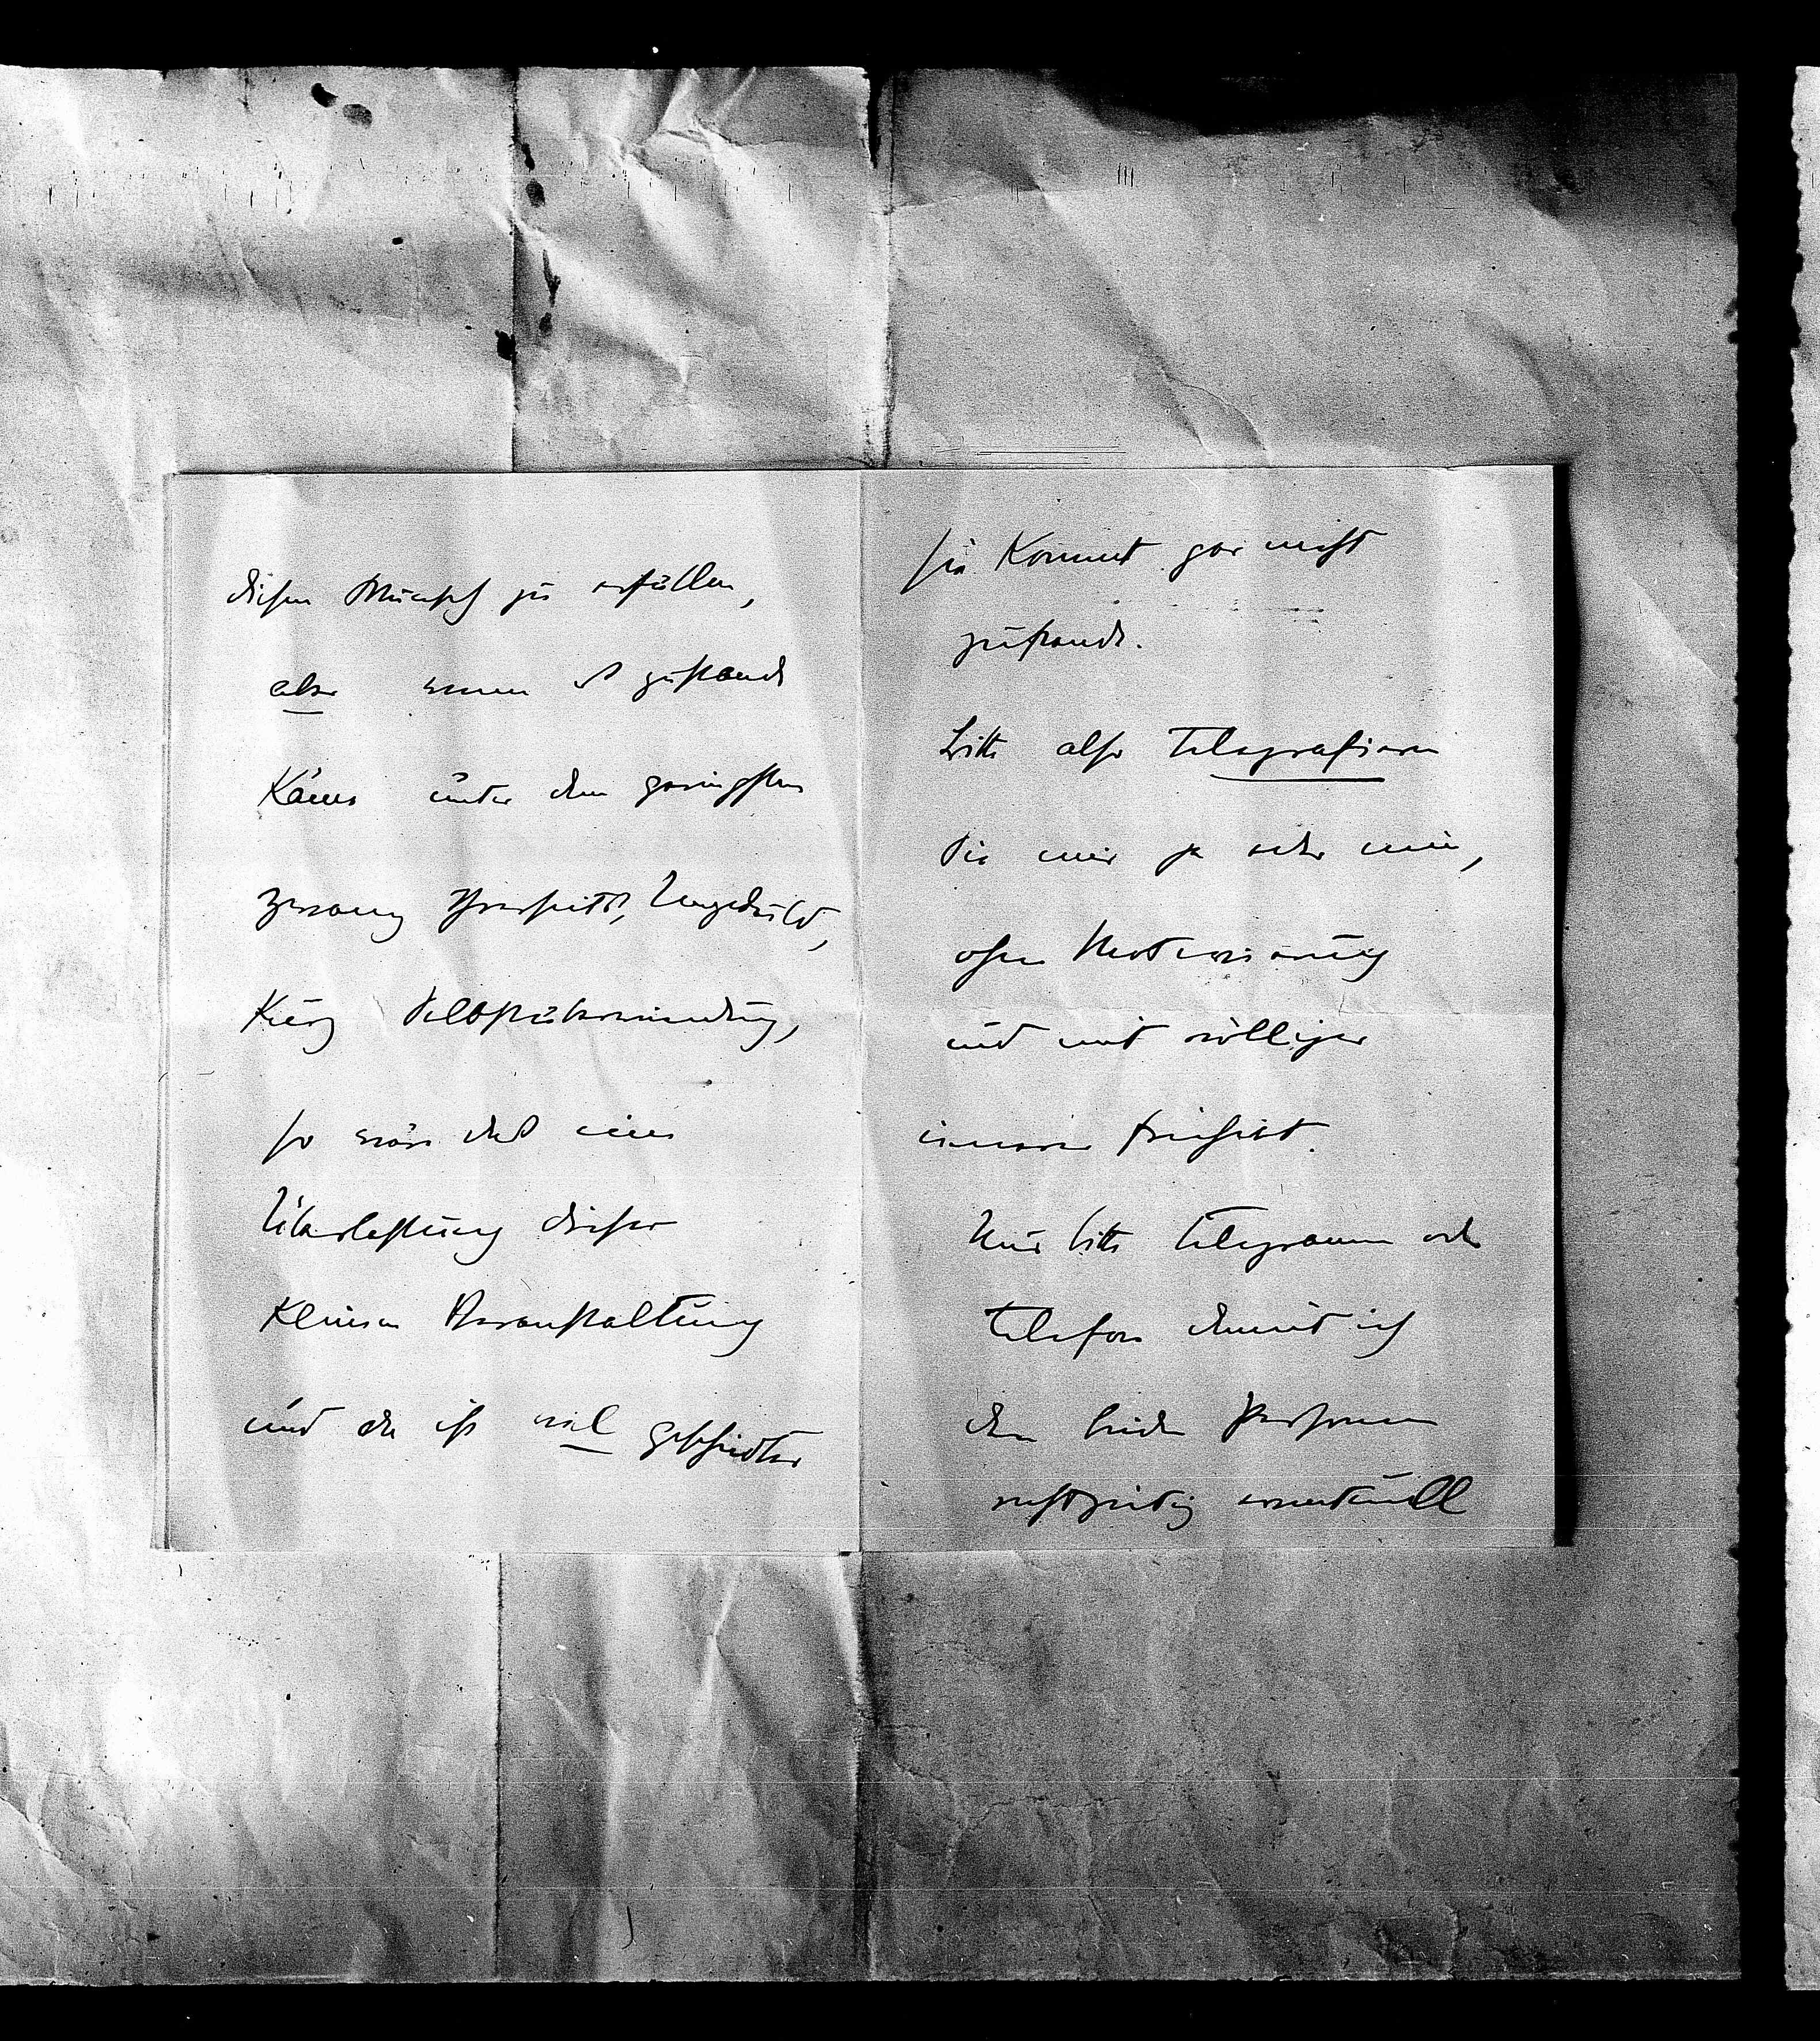 diesen Wunsch zu erfüllen,
aber wenn es zustande
käme unter dem geringsten
Zwang Ihrerseits, Ungeduld,
kurz Selbstüberwindung,
so wäre das eine
Überlastung dieser
kleinen Veranstaltung
und da ist viel gescheidter
sie kommt gar nicht
zustande.
Bitte also telegrafieren
Sie mir ja oder nein,
ohne Motivierung
und mit völliger
innerer Freiheit.
Nur bitte Telegramm oder
Telefon damit ich
den beiden Personen
rechtzeitig eventuell